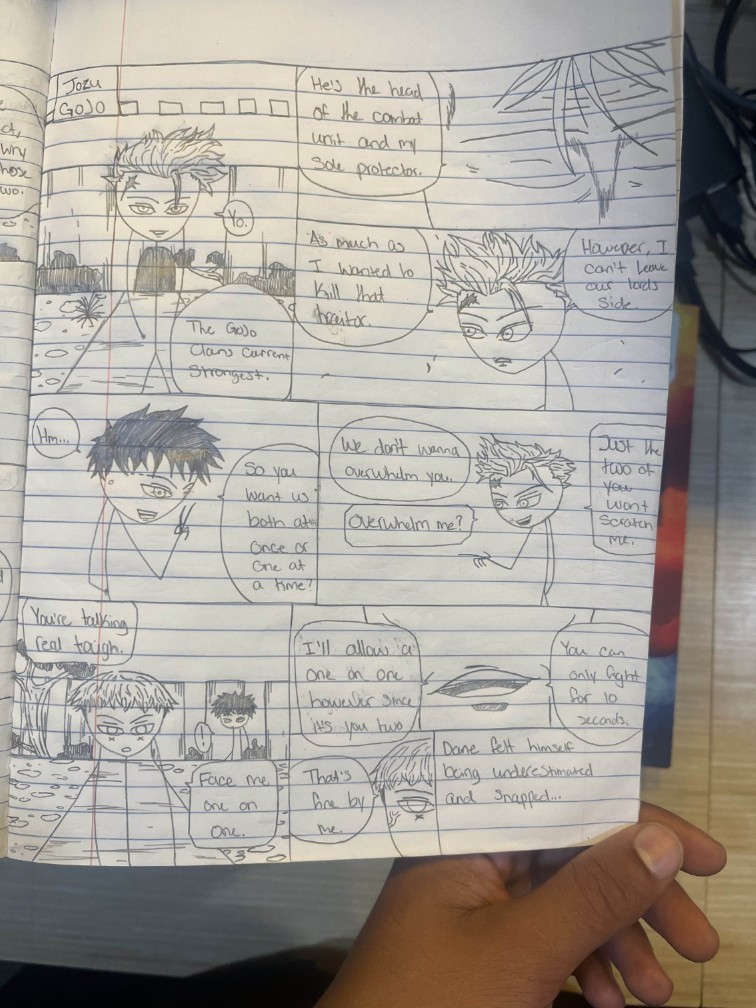 ct,
why
those
two.
Jozu
GOJO
Yo.
The GoJo
Clans Current
Strongest.
He's the head
of the combat
unit and my
Sole protector.
As much as
I wanted to
Kill that
traitor.
However, I
can't Leave
our lords
Side.
Hm...
So you
want us
both at
once or
one at
a time?
We don't wanna
overwhelm you.
Overwhelm me?
Just the
two of
you
wont
Scratch
me.
You're talking
real tough.
!
Face me
one on
One.
I'll allow a
one on one
however since
it's you two
You can
only fight
for 10
Seconds.
That's
fine by
me.
Dane felt himself
being underestimated
and snapped...